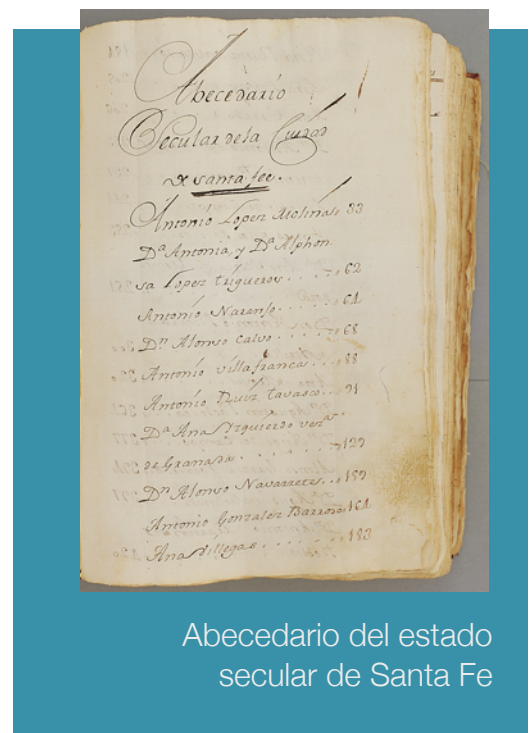 Abecedario
Secular de la Ciudad
de santa fee.
Antonio Lopez Molina, 33
Dª Antonia, y Dª Alphon
sa Lopez trigueros . . . , 62
Antonio Naranjo . . . . , 64
Dⁿ Alonso Calvo . . . , 68
Antonio villafranca . . . , 88
Antonio Ruiz tavasco . . , 91
Dª Ana Yzquierdo vezª
de Granada . . . . . , 129
Dⁿ Alonso Navarrete . . , 159
Antonio Gonzalez Barroso, 164
Ana Villegas . . . . . , 183
Abecedario del estado
secular de Santa Fe